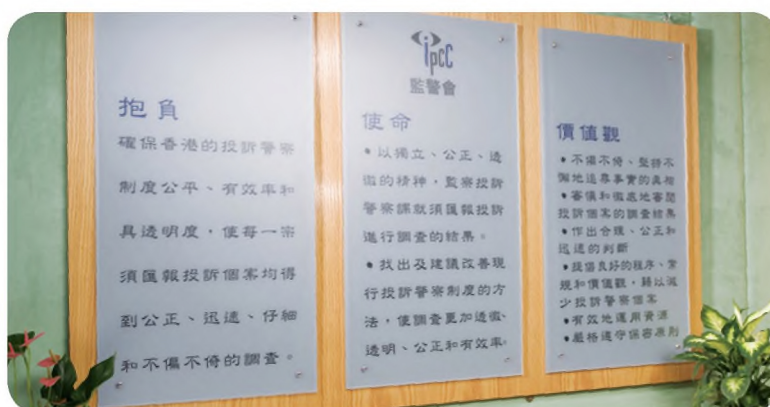 抱負
確保香港的投訴警察
制度公平、有效率和
具透明度，使每一宗
須匯報投訴個案均得
到公正、迅速、仔細
和不偏不倚的調查。
ipcc
監警會
使命
• 以獨立、公正、透
徹的精神，監察投訴
警察課就須匯報投訴
進行調查的結果。
• 找出及建議改善現
行投訴警察制度的方
法，使調查更加透徹、
透明、公正和有效率。
價值觀
• 不偏不倚、堅持不
懈地追尋事實的真相
• 審慎和徹底地審閱
投訴個案的調查結果
• 作出合理、公正和
迅速的判斷
• 提倡良好的程序、常
規和價值觀，藉以減
少投訴警察個案
• 有效地運用資源
• 嚴格遵守保密原則